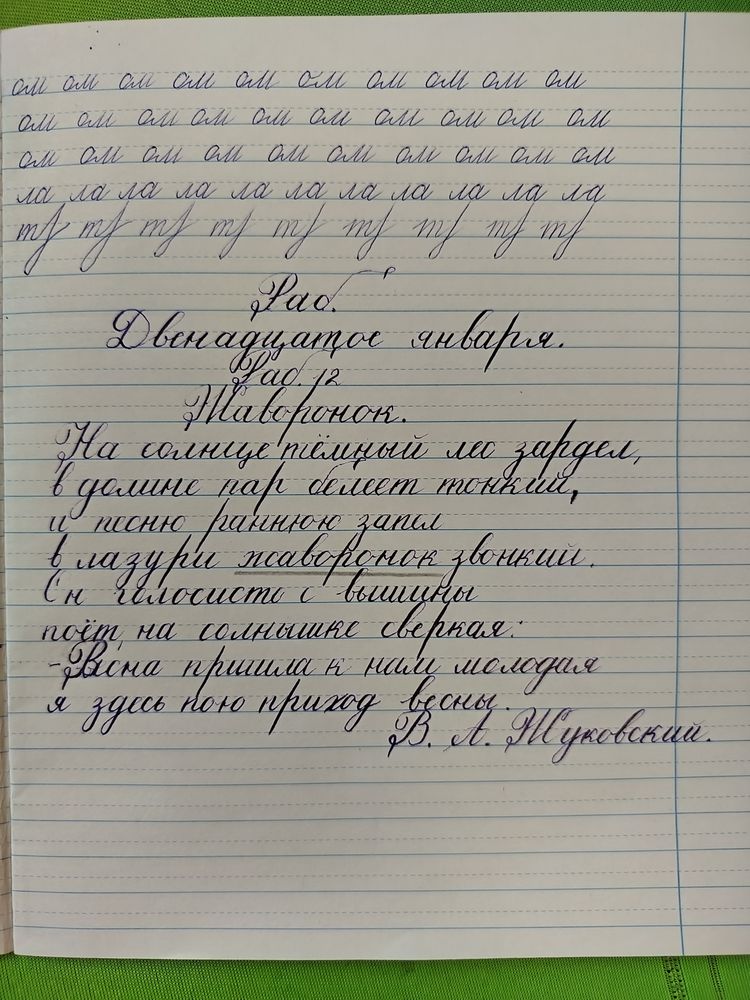 ом ом ом ом ом ом ом ом ом ом
ом ом ом ом ом ом ом ом ом ом
ом ом ом ом ом ом ом ом ом ом
ла ла ла ла ла ла ла ла ла ла ла
тf тf тf тf тf тf тf тf тf
Раб.
Двенадцатое января.
Раб. 12
Жаворонок.
На солнце тёмный лес зардел,
в долине пар белеет тонкий,
и песню раннюю запел
в лазури жаворонок звонкий.
Он голосисто с вышины
поёт, на солнышке сверкая:
-Весна пришла к нам молодая
я здесь пою приход весны.
В. А. Жуковский.